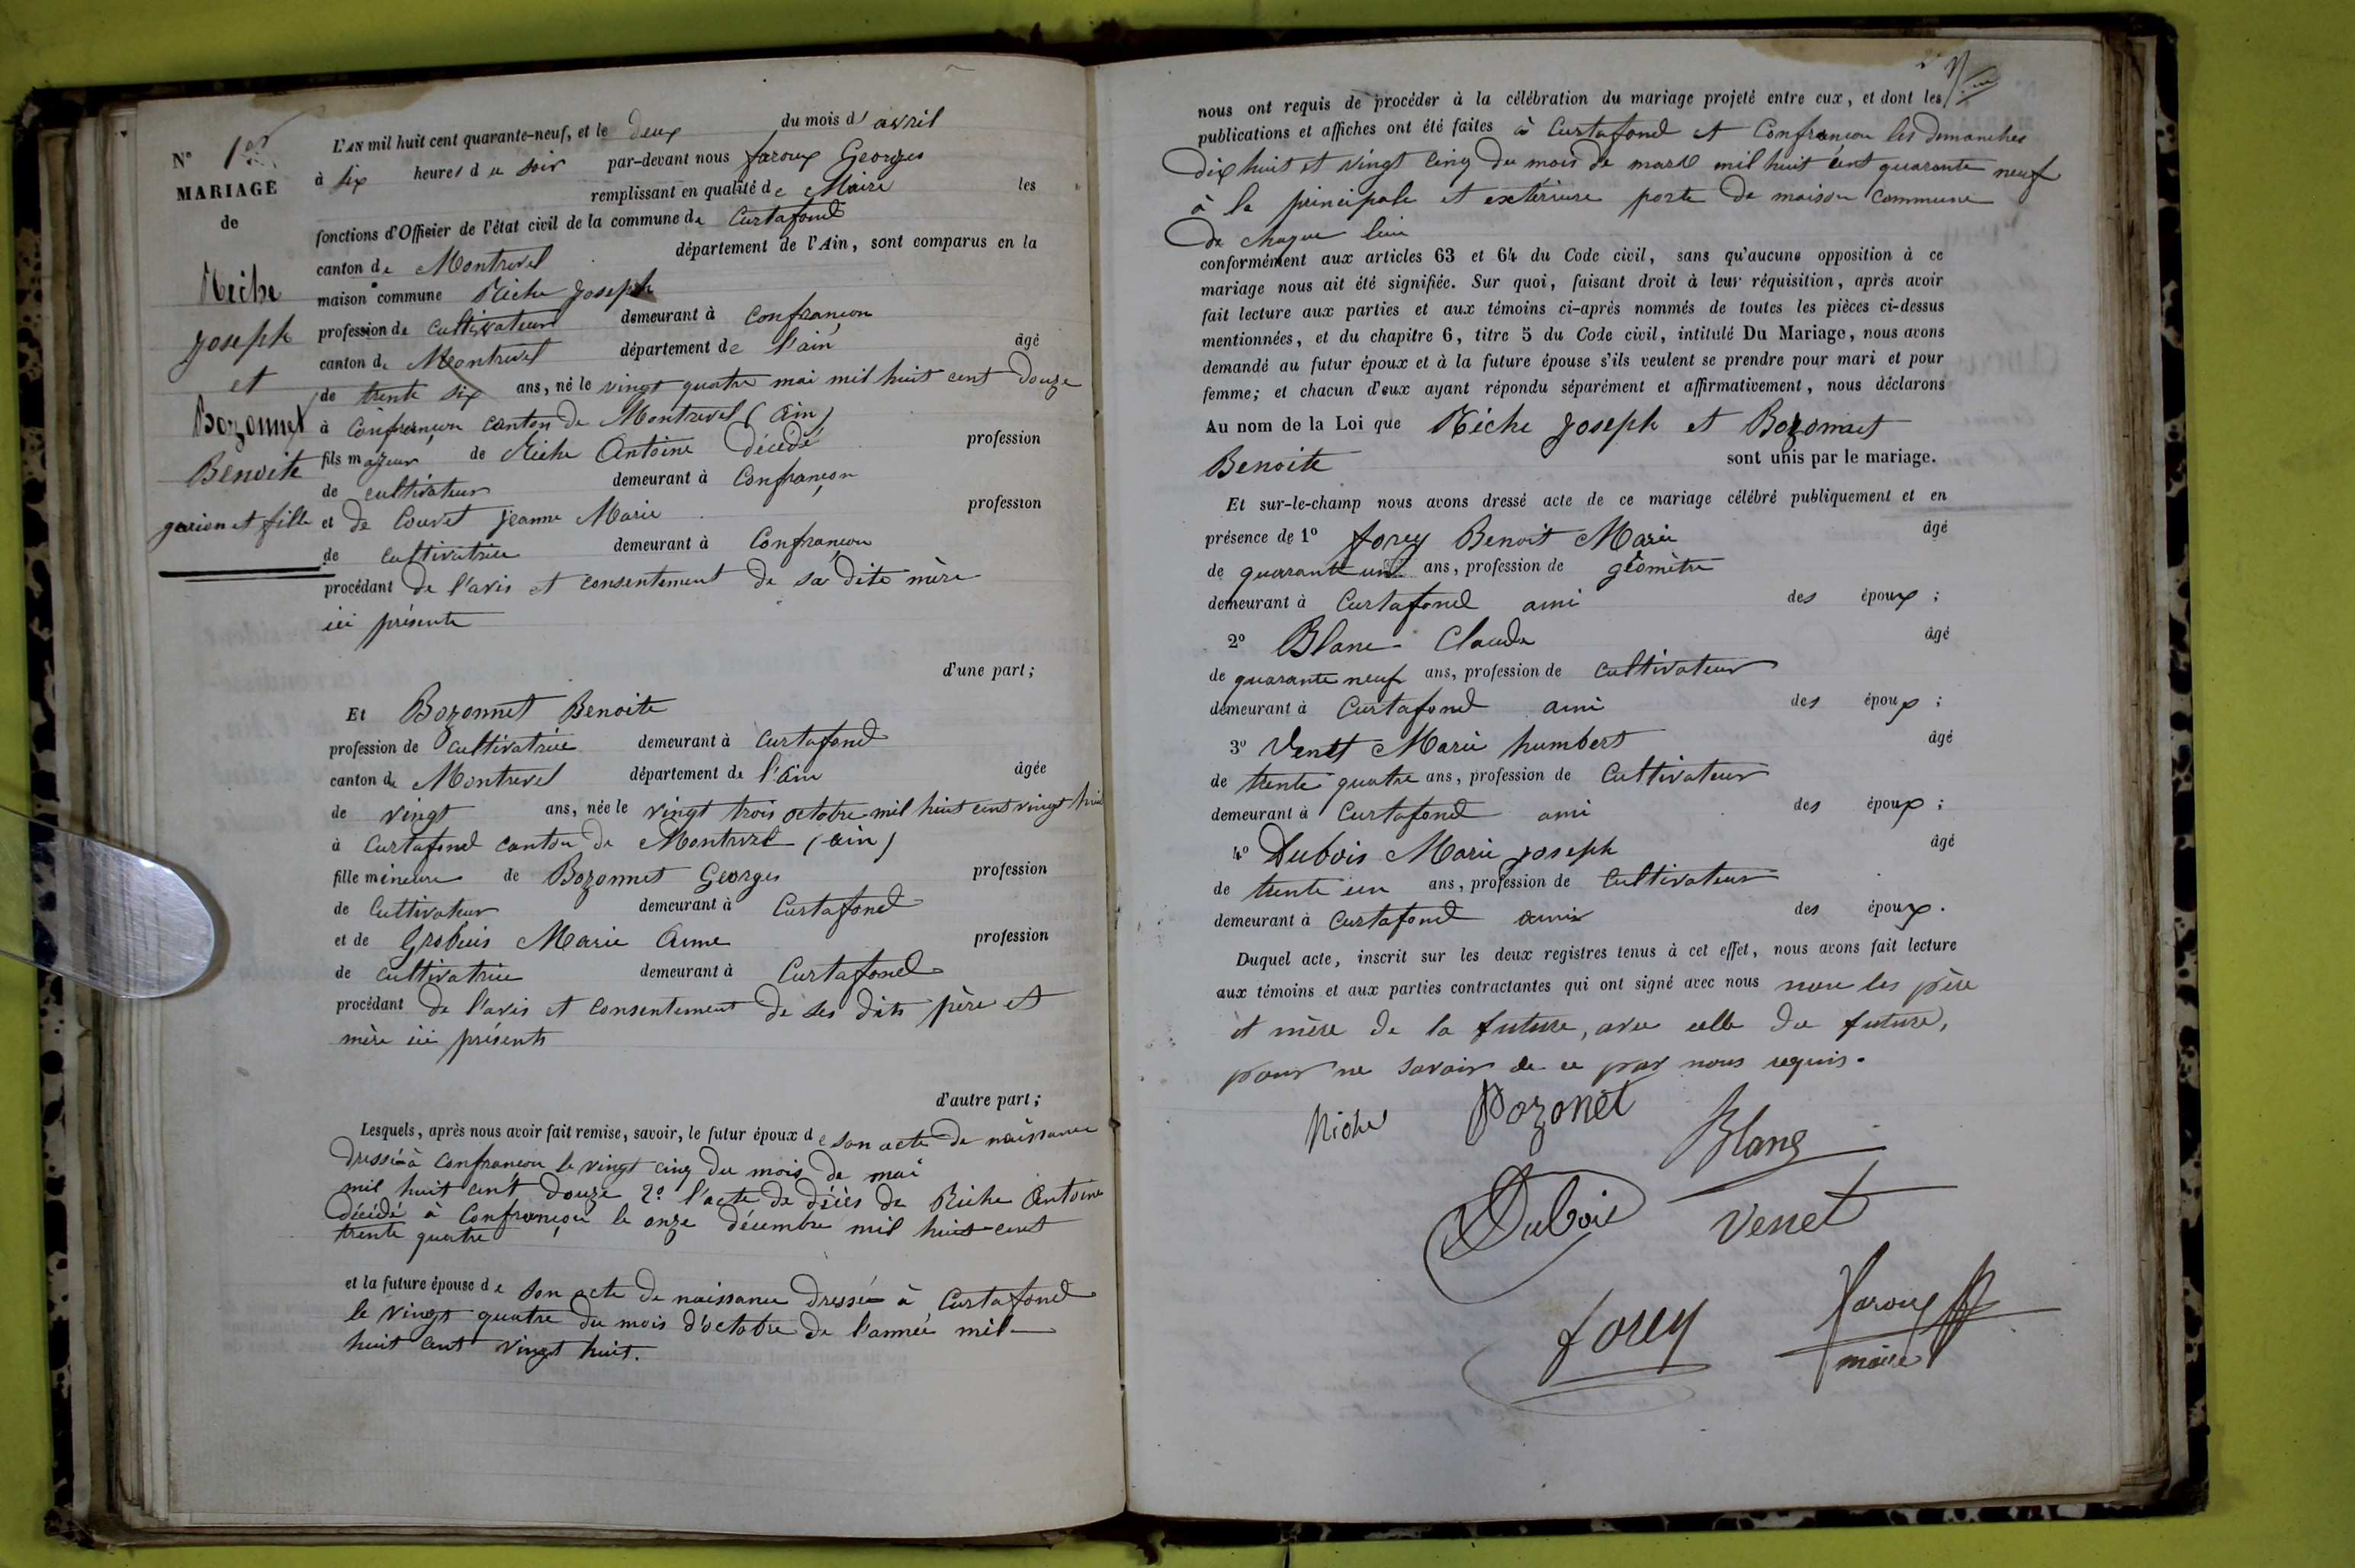 N° 1er
MARIAGE
de
Riche
Joseph
et
Bozonnet
Benoite
garçon et fille
L'AN mil huit cent quarante-neuf, et le deux du mois d'avril
à six heures du soir par-devant nous faroux Georges
remplissant en qualité de Maire les
fonctions d'Officier de l'état civil de la commune de Curtafond
canton de Montrevel département de l'Ain, sont comparus en la
maison commune Riche Joseph
profession de cultivateur demeurant à Confrançon
canton de Montrevel département de l'ain âgé
de trente six ans, né le vingt quatre mai mil huit cent douze
à Confrançon canton de Montrevel (ain)
fils majeur de Riche Antoine décédé profession
de cultivateur demeurant à Confrançon
et de Couvet Jeanne Marie profession
de cultivatrice demeurant à Confrançon
procédant de l'avis et consentement de sa dite mère
ici présente
d'une part;
Et Bozonnet Benoite
profession de cultivatrice demeurant à Curtafond
canton de Montrevel département de l'ain âgée
de vingt ans, née le vingt trois octobre mil huit cent vingt huit
à Curtafond canton de Montrevel (ain)
fille mineure de Bozonnet Georges profession
de Cultivateur demeurant à Curtafond
et de Grobuis Marie Anne profession
de cultivatrice demeurant à Curtafond
procédant de l'avis et consentement de ses dits père et
mère ici présents
d'autre part;
Lesquels, après nous avoir fait remise, savoir, le futur époux de son acte de naissance
dressé à Confrançon le vingt cinq du mois de mai
mil huit cent douze 2° l'acte de décès de Riche Antoine
décédé à Confrançon le onze décembre mil huit cent
trente quatre
et la future épouse de son acte de naissance dressé à Curtafond
le vingt quatre du mois d'octobre de l'année mil
huit cent vingt huit.
nous ont requis de procéder à la célébration du mariage projeté entre eux, et dont les
publications et affiches ont été faites à Curtafond et Confrançon les dimanches
dix huit et vingt cinq du mois de mars mil huit cent quarante neuf
à la principale et extérieure porte de maison commune
de chaque lieu
conformément aux articles 63 et 64 du Code civil, sans qu'aucune opposition à ce
mariage nous ait été signifiée. Sur quoi, faisant droit à leur réquisition, après avoir
fait lecture aux parties et aux témoins ci-après nommés de toutes les pièces ci-dessus
mentionnées, et du chapitre 6, titre 5 du Code civil, intitulé Du Mariage, nous avons
demandé au futur époux et à la future épouse s'ils veulent se prendre pour mari et pour
femme; et chacun d'eux ayant répondu séparément et affirmativement, nous déclarons
Au nom de la Loi que Riche Joseph et Bozonnet
Benoite sont unis par le mariage.
Et sur-le-champ nous avons dressé acte de ce mariage célébré publiquement et en
présence de 1° forey Benoit Marie âgé
de quarante un ans, profession de géomètre
demeurant à Curtafond ami des époux;
2° Blanc Claude âgé
de quarante neuf ans, profession de cultivateur
demeurant à Curtafond ami des époux;
3° Venet Marie humbert âgé
de trente quatre ans, profession de Cultivateur
demeurant à Curtafond ami des époux;
4° Dubois Marie Joseph âgé
de trente un ans, profession de Cultivateur
demeurant à Curtafond ami des époux.
Duquel acte, inscrit sur les deux registres tenus à cet effet, nous avons fait lecture
aux témoins et aux parties contractantes qui ont signé avec nous non les père
et mère de la future, avec celle du future,
pour ne savoir de ce par nous requis.
Riche Bozonet
Blanc
Dubois Venet
forey
faroux
maire